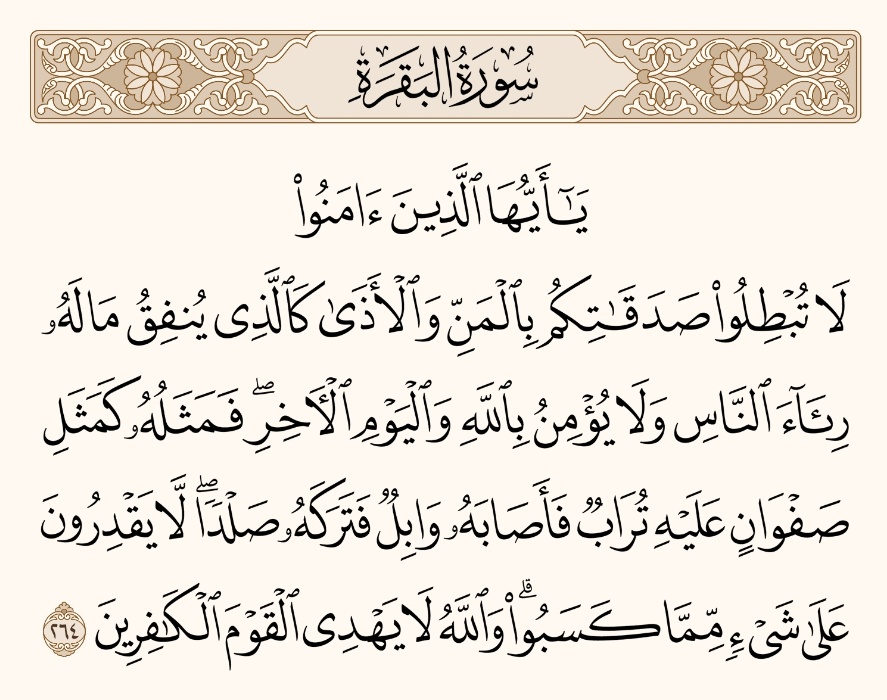 سُورَةُ البَقَرَةِ
يَـٰٓأَيُّهَا ٱلَّذِينَ ءَامَنُوا۟
لَا تُبْطِلُوا۟ صَدَقَـٰتِكُم بِٱلْمَنِّ وَٱلْأَذَىٰ كَٱلَّذِى يُنفِقُ مَالَهُۥ
رِئَآءَ ٱلنَّاسِ وَلَا يُؤْمِنُ بِٱللَّهِ وَٱلْيَوْمِ ٱلْـَٔاخِرِ ۖ فَمَثَلُهُۥ كَمَثَلِ
صَفْوَانٍ عَلَيْهِ تُرَابٌ فَأَصَابَهُۥ وَابِلٌ فَتَرَكَهُۥ صَلْدًا ۖ لَّا يَقْدِرُونَ
عَلَىٰ شَىْءٍ مِّمَّا كَسَبُوا۟ ۗ وَٱللَّهُ لَا يَهْدِى ٱلْقَوْمَ ٱلْكَـٰفِرِينَ ٢٦٤